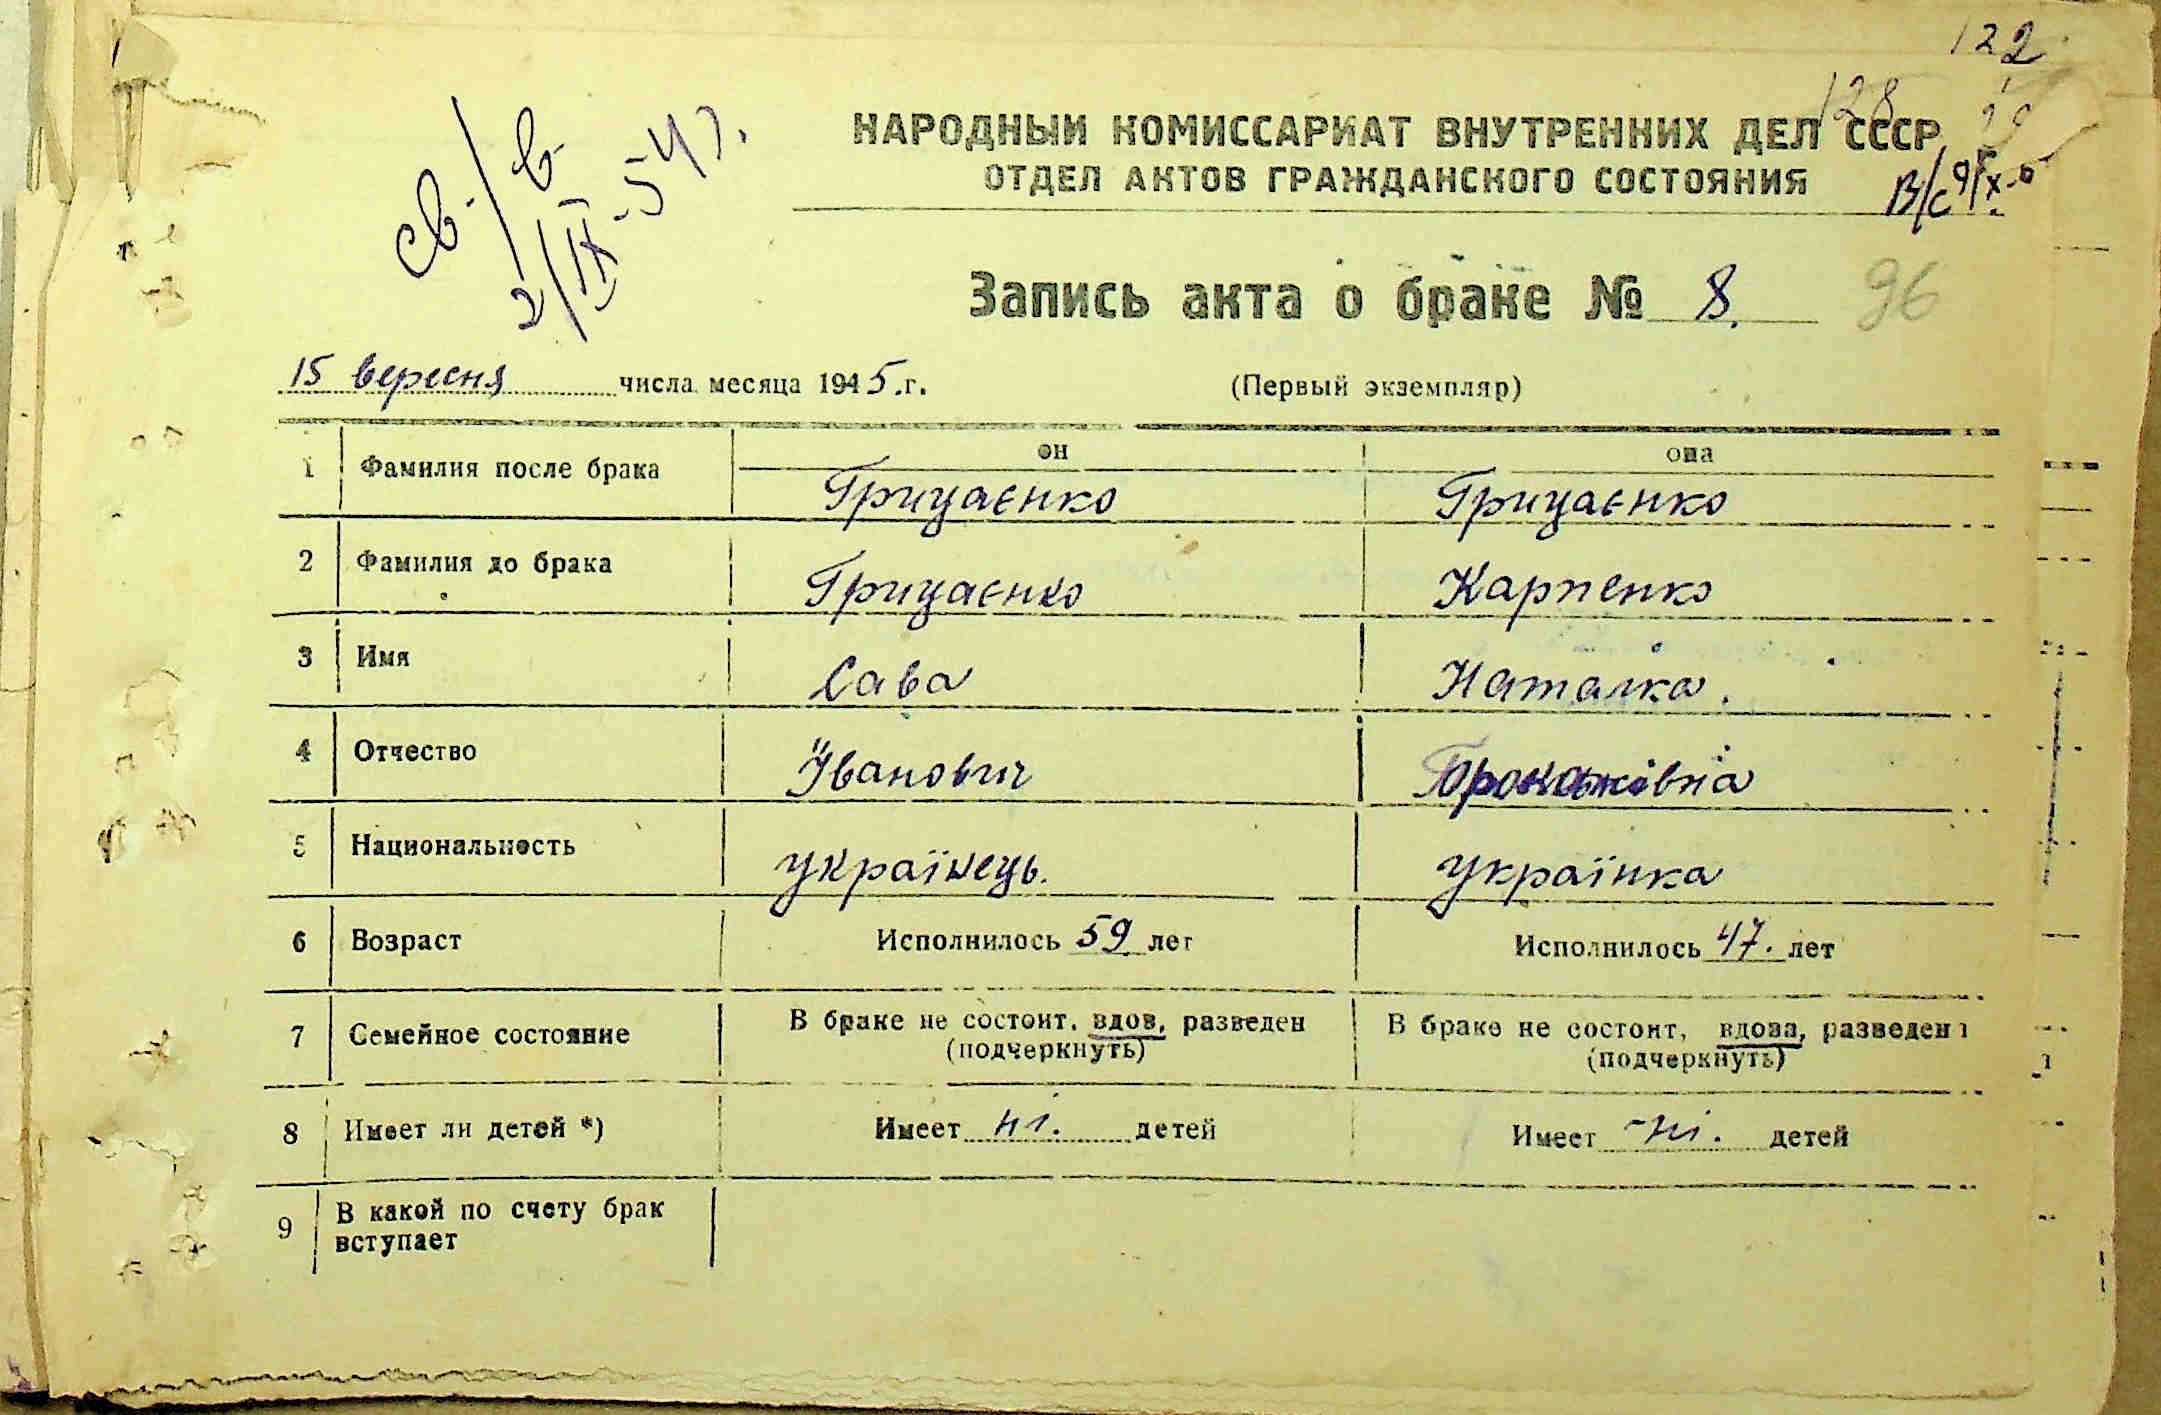 122
128
НАРОДНЫЙ КОМИССАРИАТ ВНУТРЕННИХ ДЕЛ СССР
ОТДЕЛ АКТОВ ГРАЖДАНСКОГО СОСТОЯНИЯ
св./в
2/IX-54 г.
Запись акта о браке № 8.
96
15 вересня числа месяца 1945.г.
(Первый экземпляр)
он она
1 Фамилия после брака Грицаєнко Грицаєнко
2 Фамилия до брака Грицаєнко Карпенко
3 Имя Сава Наталка.
4 Отчество Іванович
5 Национальность українець. українка
6 Возраст Исполнилось 59 лет Исполнилось 47. лет
7 Семейное состояние В браке не состоит, вдов, разведен В браке не состоит, вдова, разведена
(подчеркнуть) (подчеркнуть)
8 Имеет ли детей *) Имеет ні. детей Имеет -ні. детей
9 В какой по счету брак
вступает